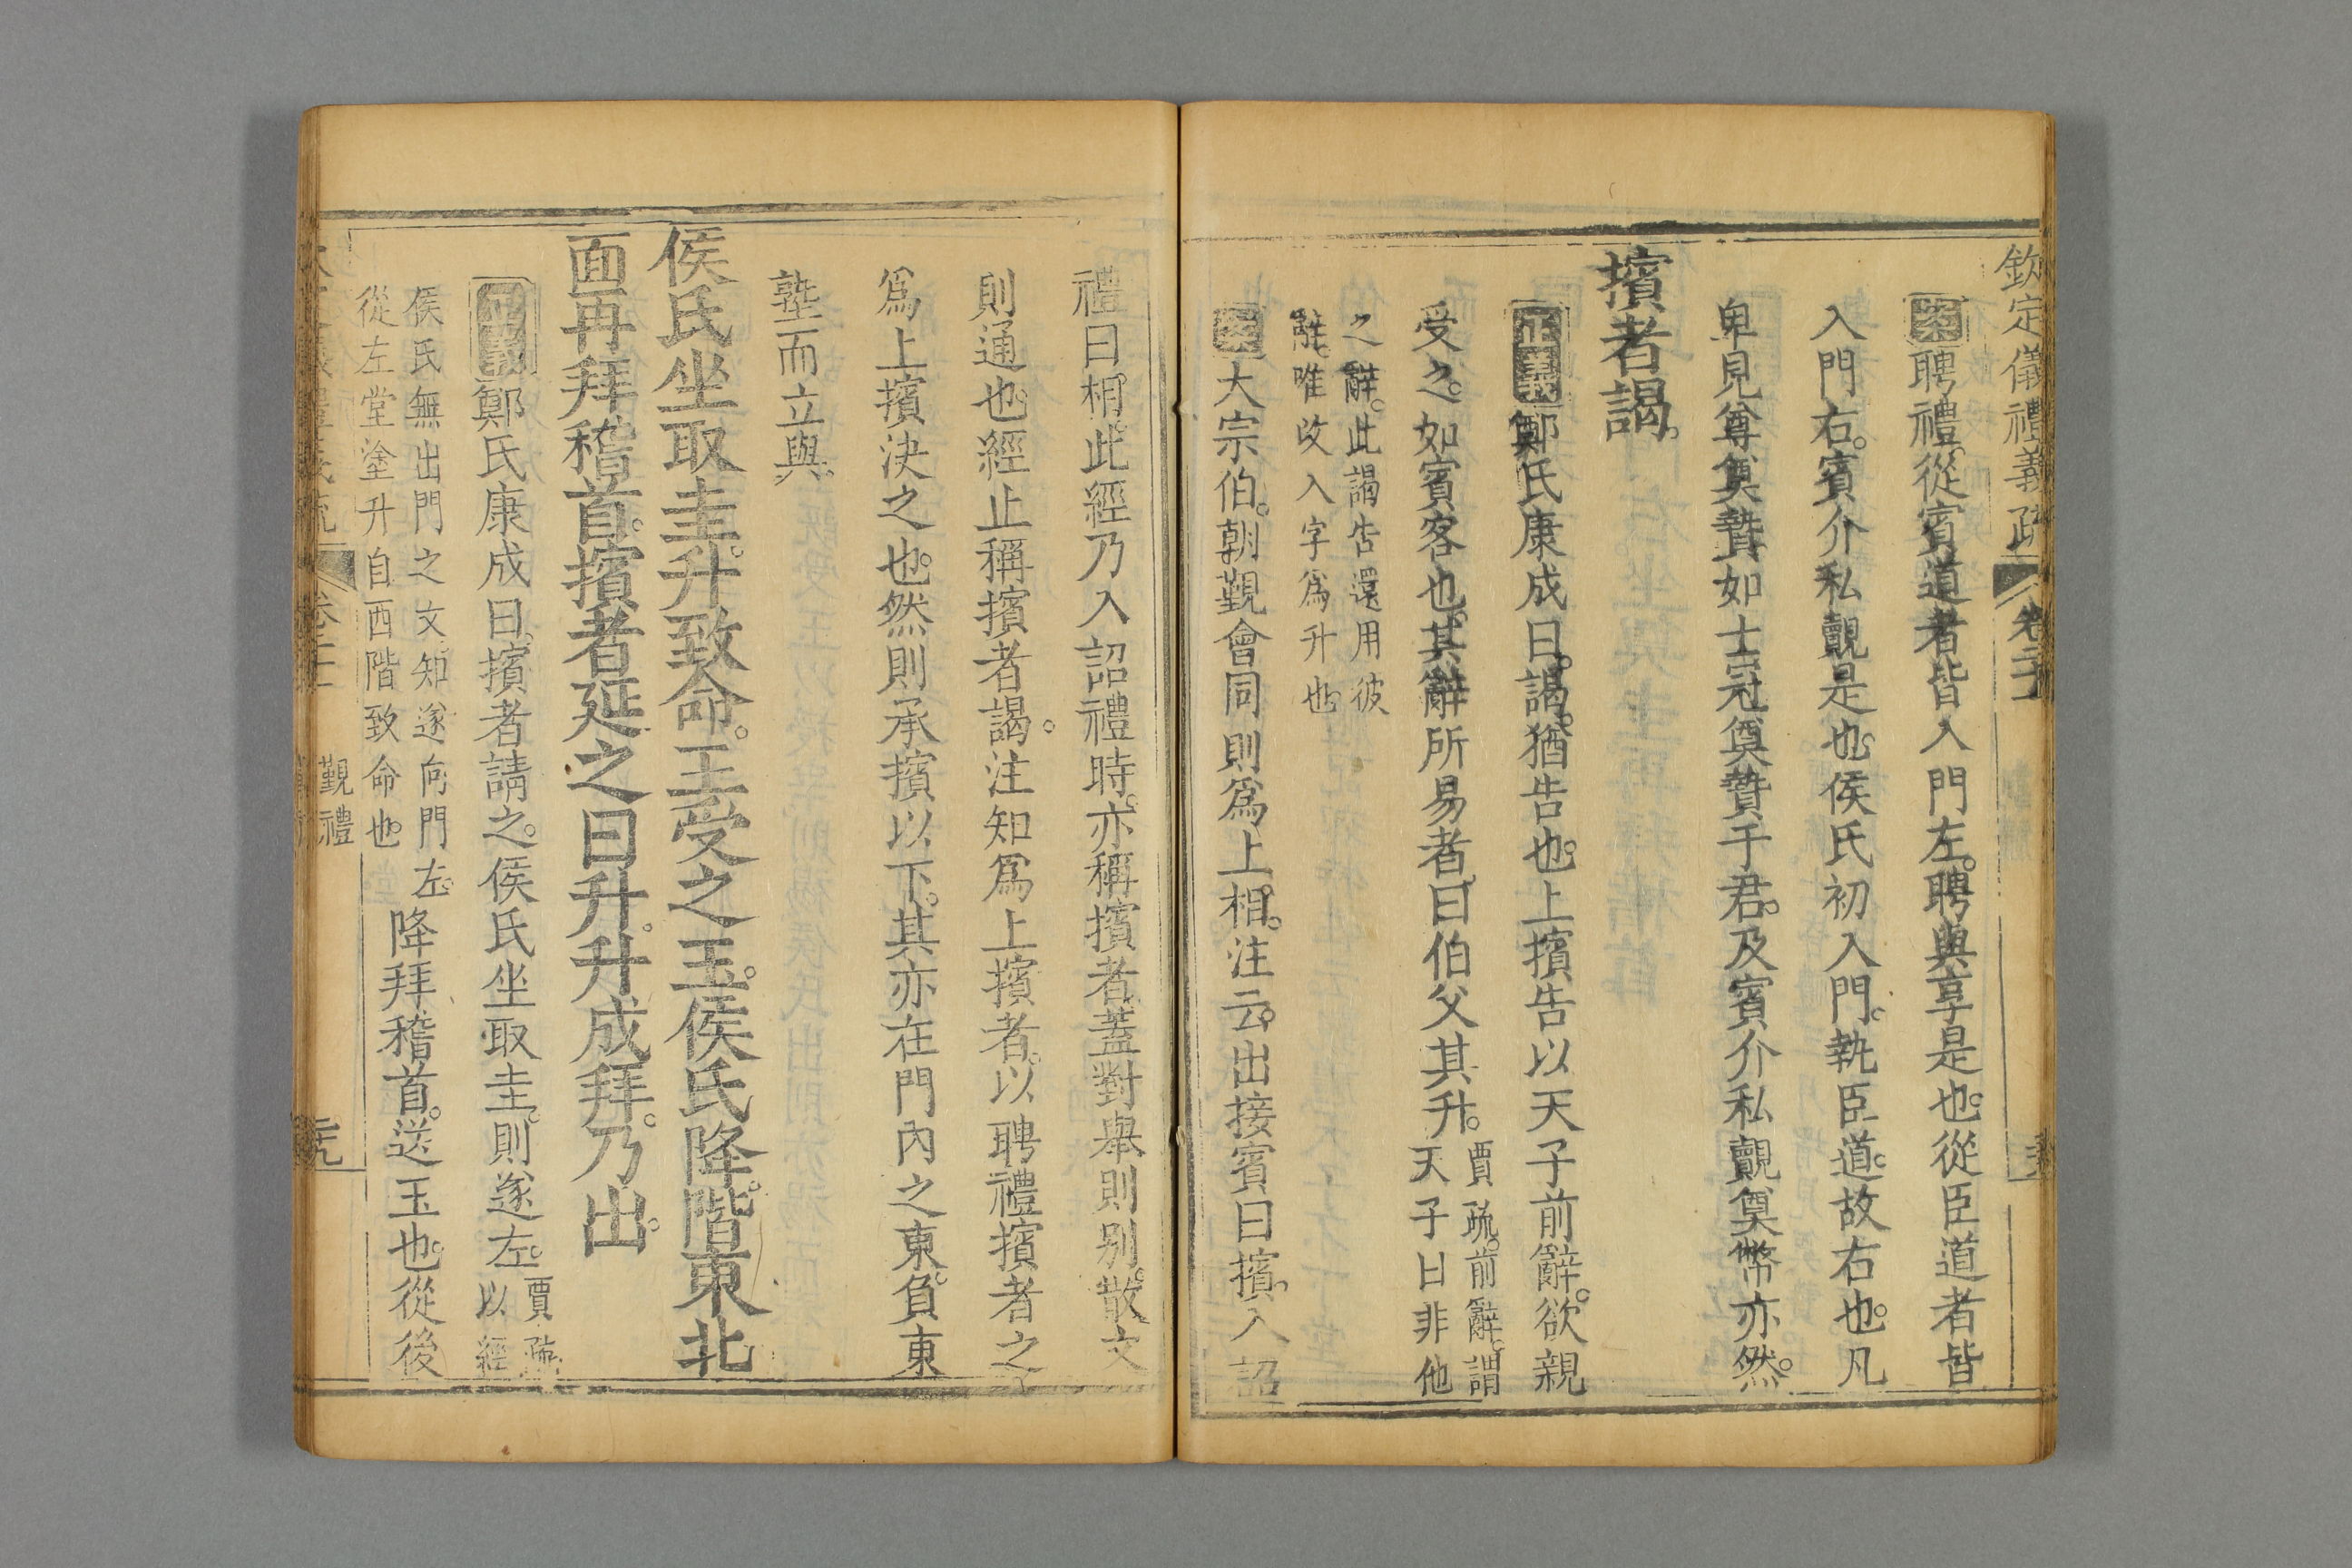 欽定儀禮義疏
卷二十
案聘禮從賓道者皆入門左聘與享是也從臣道者皆
入門右賓介私覿是也侯氏初入門執臣道故右也凡
卑見尊奠贄如士冠奠贄于君及賓介私覿奠幣亦然
擯者謁
正義鄭氏康成曰謁猶告也上擯告以天子前辭欲親
受之如賓客也其辭所易者曰伯父其升
賈疏前辭謂
天子曰非他
之辭此謁告還用彼
辭唯改入字為升也
案大宗伯朝覲會同則為上相注云出接賓曰擯入詔
禮曰相此經乃入詔禮時亦稱擯者蓋對舉則别散文
則通也經止稱擯者謁注知為上擯者以聘禮擯者之
為上擯決之也然則承擯以下其亦在門內之東負東
塾而立與
侯氏坐取圭升致命王受之玉侯氏降階東北
面再拜稽首擯者延之曰升升成拜乃出
正義鄭氏康成曰擯者請之侯氏坐取圭則遂左
賈疏
以經
侯氏無出門之文知遂向門左
從左堂塗升自西階致命也
降拜稽首送玉也從後
覲禮